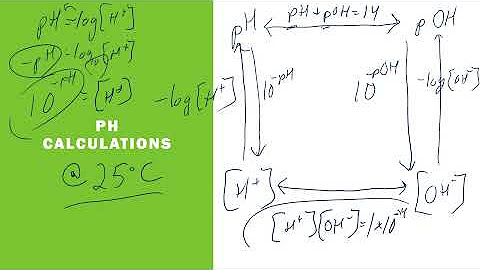 pH = -log[H⁺]
-pH = log₁₀[H⁺]
10^-pH = [H⁺]
PH
CALCULATIONS
@ 25°C
pH
pH + pOH = 14
pOH
-log[H⁺]
10^-pH
10^-pOH
-log[OH⁻]
[H⁺]
[OH⁻]
[H⁺][OH⁻] = 1x10^-14